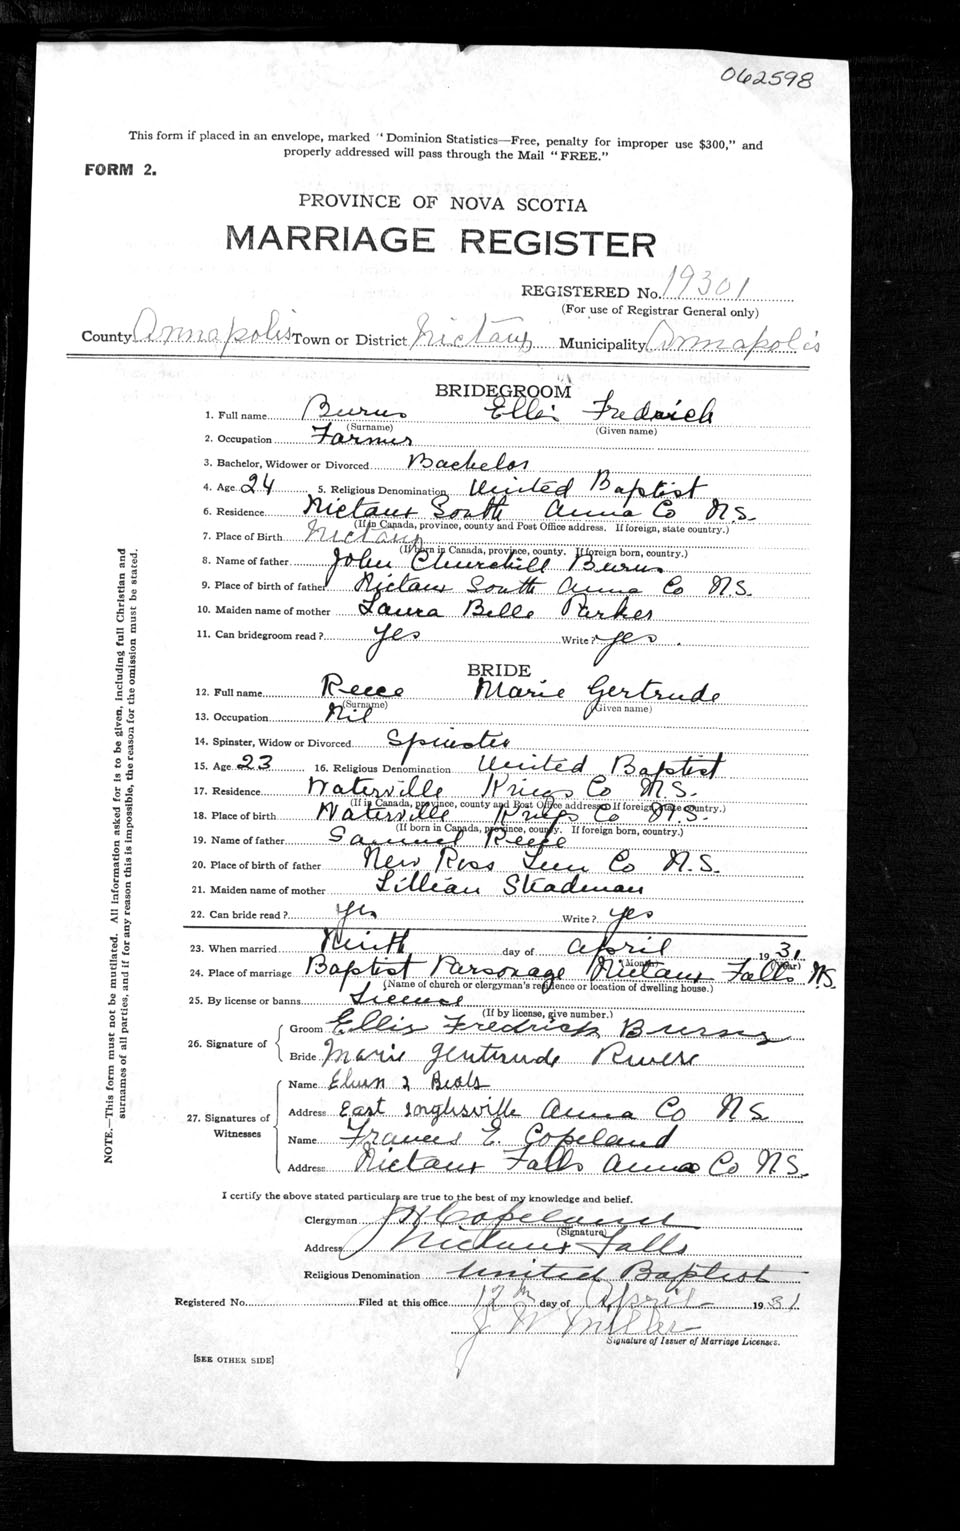 062598
This form if placed in an envelope, marked "Dominion Statistics—Free, penalty for improper use $300," and
properly addressed will pass through the Mail "FREE."
FORM 2.
PROVINCE OF NOVA SCOTIA
MARRIAGE REGISTER
REGISTERED No. 19301
(For use of Registrar General only)
County Annapolis Town or District Nictaux Municipality Annapolis
BRIDEGROOM
1. Full name Burns Ellis Fredrick
(Surname) (Given name)
2. Occupation Farmer
3. Bachelor, Widower or Divorced Bachelor
4. Age 24 5. Religious Denomination United Baptist
6. Residence Nictaux South Anna Co N.S.
(If in Canada, province, county and Post Office address. If foreign, state country.)
7. Place of Birth Nictaux
(If born in Canada, province, county. If foreign born, country.)
8. Name of father John Churchill Burns
9. Place of birth of father Nictaux South Anna Co N.S.
10. Maiden name of mother Laura Belle Parker
11. Can bridegroom read? Yes Write? Yes.
BRIDE
12. Full name Reece Marie Gertrude
(Surname) (Given name)
13. Occupation Nil
14. Spinster, Widow or Divorced Spinster
15. Age 23 16. Religious Denomination United Baptist
17. Residence Waterville Kings Co N.S.
(If in Canada, province, county and Post Office address. If foreign, state country.)
18. Place of birth Waterville Kings Co N.S.
(If born in Canada, province, county. If foreign born, country.)
19. Name of father Samuel Reece
20. Place of birth of father New Ross Lun Co N.S.
21. Maiden name of mother Lillian Steadman
22. Can bride read? Yes Write? Yes
23. When married Ninth day of April 1931
(Month) (Year)
24. Place of marriage Baptist Parsonage Nictaux Falls N.S.
(Name of church or clergyman's residence or location of dwelling house.)
25. By license or banns License
(If by license, give number.)
26. Signature of Groom Ellis Fredrick Burns
Bride Marie Gertrude
27. Signatures of Witnesses Name Beals
Address East Inglisville Anna Co N.S.
Name Frances E. Copeland
Address Nictaux Falls Anna Co N.S.
I certify the above stated particulars are true to the best of my knowledge and belief.
Clergyman Copeland
(Signature)
Address Nictaux Falls
Religious Denomination United Baptist
Registered No. Filed at this office 12th day of April 1931
J W Miller
Signature of Issuer of Marriage Licenses.
[SEE OTHER SIDE]
NOTE.—This form must not be mutilated. All information asked for is to be given, including full Christian and
surnames of all parties, and if for any reason this is impossible, the reason for the omission must be stated.